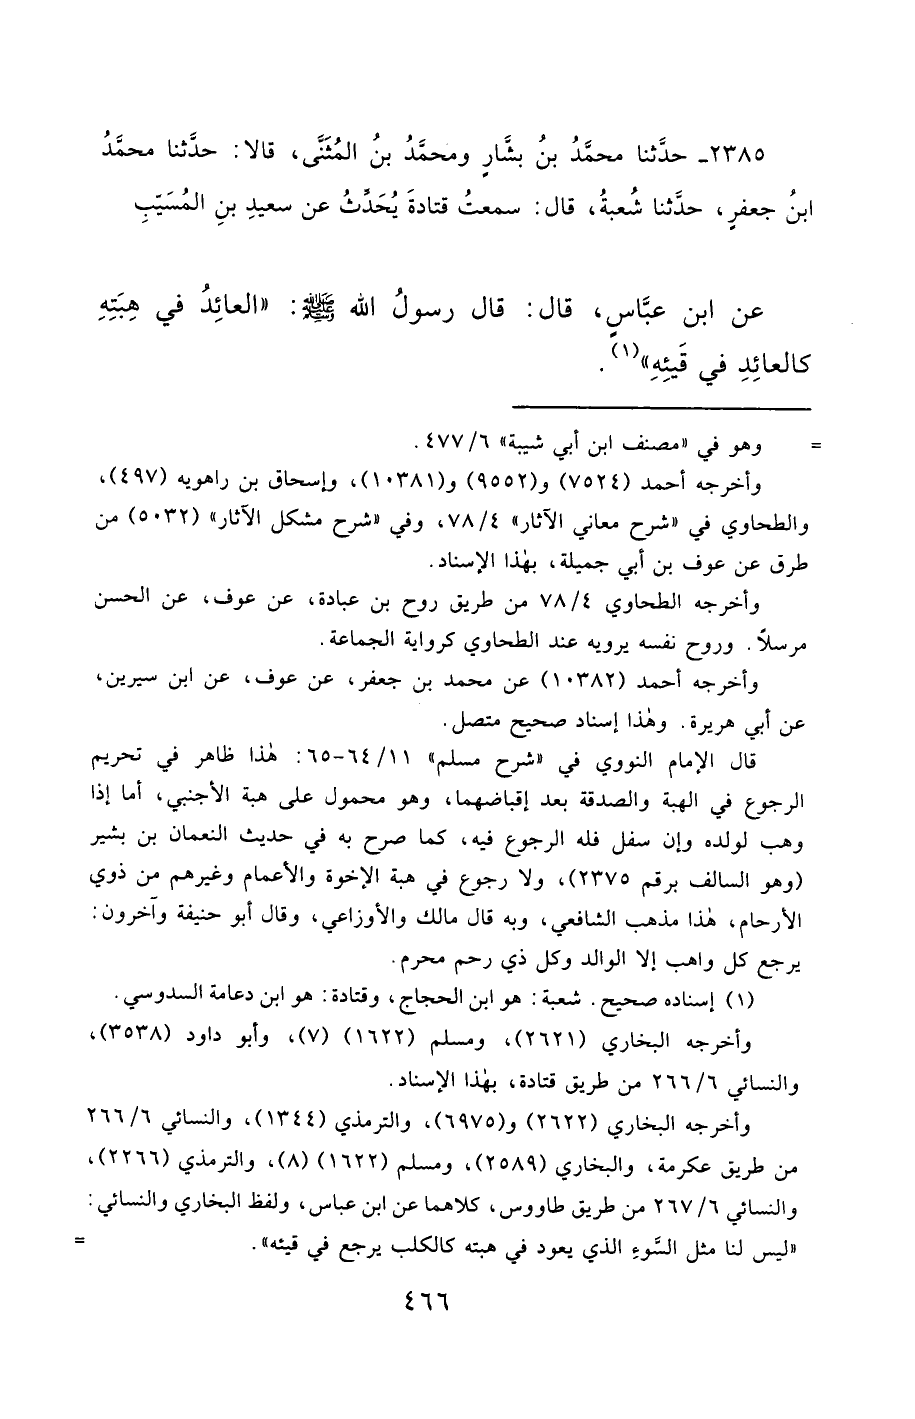 ٢٣٨٥ـ حدَّثنا محمَّدُ بنُ بشَّارٍ ومحمَّدُ بنُ المُثنَّى، قالا: حدَّثنا محمَّدُ
ابنُ جعفرٍ، حدَّثنا شُعبةُ، قال: سمعتُ قتادةَ يُحَدِّثُ عن سعيدِ بنِ المُسَيّبِ
عن ابن عبَّاسٍ، قال: قال رسولُ الله ﷺ: «العائِدُ في هِبَتِهِ
كالعائِدِ في قَيئِهِ»(١).
= وهو في «مصنف ابن أبي شيبة» ٤٧٧/٦.
وأخرجه أحمد (٧٥٢٤) و(٩٥٥٢) و(١٠٣٨١)، وإسحاق بن راهويه (٤٩٧)،
والطحاوي في «شرح معاني الآثار» ٧٨/٤، وفي «شرح مشكل الآثار» (٥٠٣٢) من
طرق عن عوف بن أبي جميلة، بهٰذا الإسناد.
وأخرجه الطحاوي ٧٨/٤ من طريق روح بن عبادة، عن عوف، عن الحسن
مرسلاً. وروح نفسه يرويه عند الطحاوي كرواية الجماعة.
وأخرجه أحمد (١٠٣٨٢) عن محمد بن جعفر، عن عوف، عن ابن سيرين،
عن أبي هريرة. وهٰذا إسناد صحيح متصل.
قال الإمام النووي في «شرح مسلم» ٦٤/١١-٦٥: هٰذا ظاهر في تحريم
الرجوع في الهبة والصدقة بعد إقباضهما، وهو محمول على هبة الأجنبي، أما إذا
وهب لولده وإن سفل فله الرجوع فيه، كما صرح به في حديث النعمان بن بشير
(وهو السالف برقم ٢٣٧٥)، ولا رجوع في هبة الإخوة والأعمام وغيرهم من ذوي
الأرحام، هٰذا مذهب الشافعي، وبه قال مالك والأوزاعي، وقال أبو حنيفة وآخرون:
يرجع كل واهب إلا الوالد وكل ذي رحم محرم.
(١) إسناده صحيح. شعبة: هو ابن الحجاج، وقتادة: هو ابن دعامة السدوسي.
وأخرجه البخاري (٢٦٢١)، ومسلم (١٦٢٢) (٧)، وأبو داود (٣٥٣٨)،
والنسائي ٢٦٦/٦ من طريق قتادة، بهٰذا الإسناد.
وأخرجه البخاري (٢٦٢٢) و(٦٩٧٥)، والترمذي (١٣٤٤)، والنسائي ٢٦٦/٦
من طريق عكرمة، والبخاري (٢٥٨٩)، ومسلم (١٦٢٢) (٨)، والترمذي (٢٢٦٦)،
والنسائي ٢٦٧/٦ من طريق طاووس، كلاهما عن ابن عباس، ولفظ البخاري والنسائي:
«ليس لنا مثل السَّوءِ الذي يعود في هبته كالكلب يرجع في قيئه». =
٤٦٦